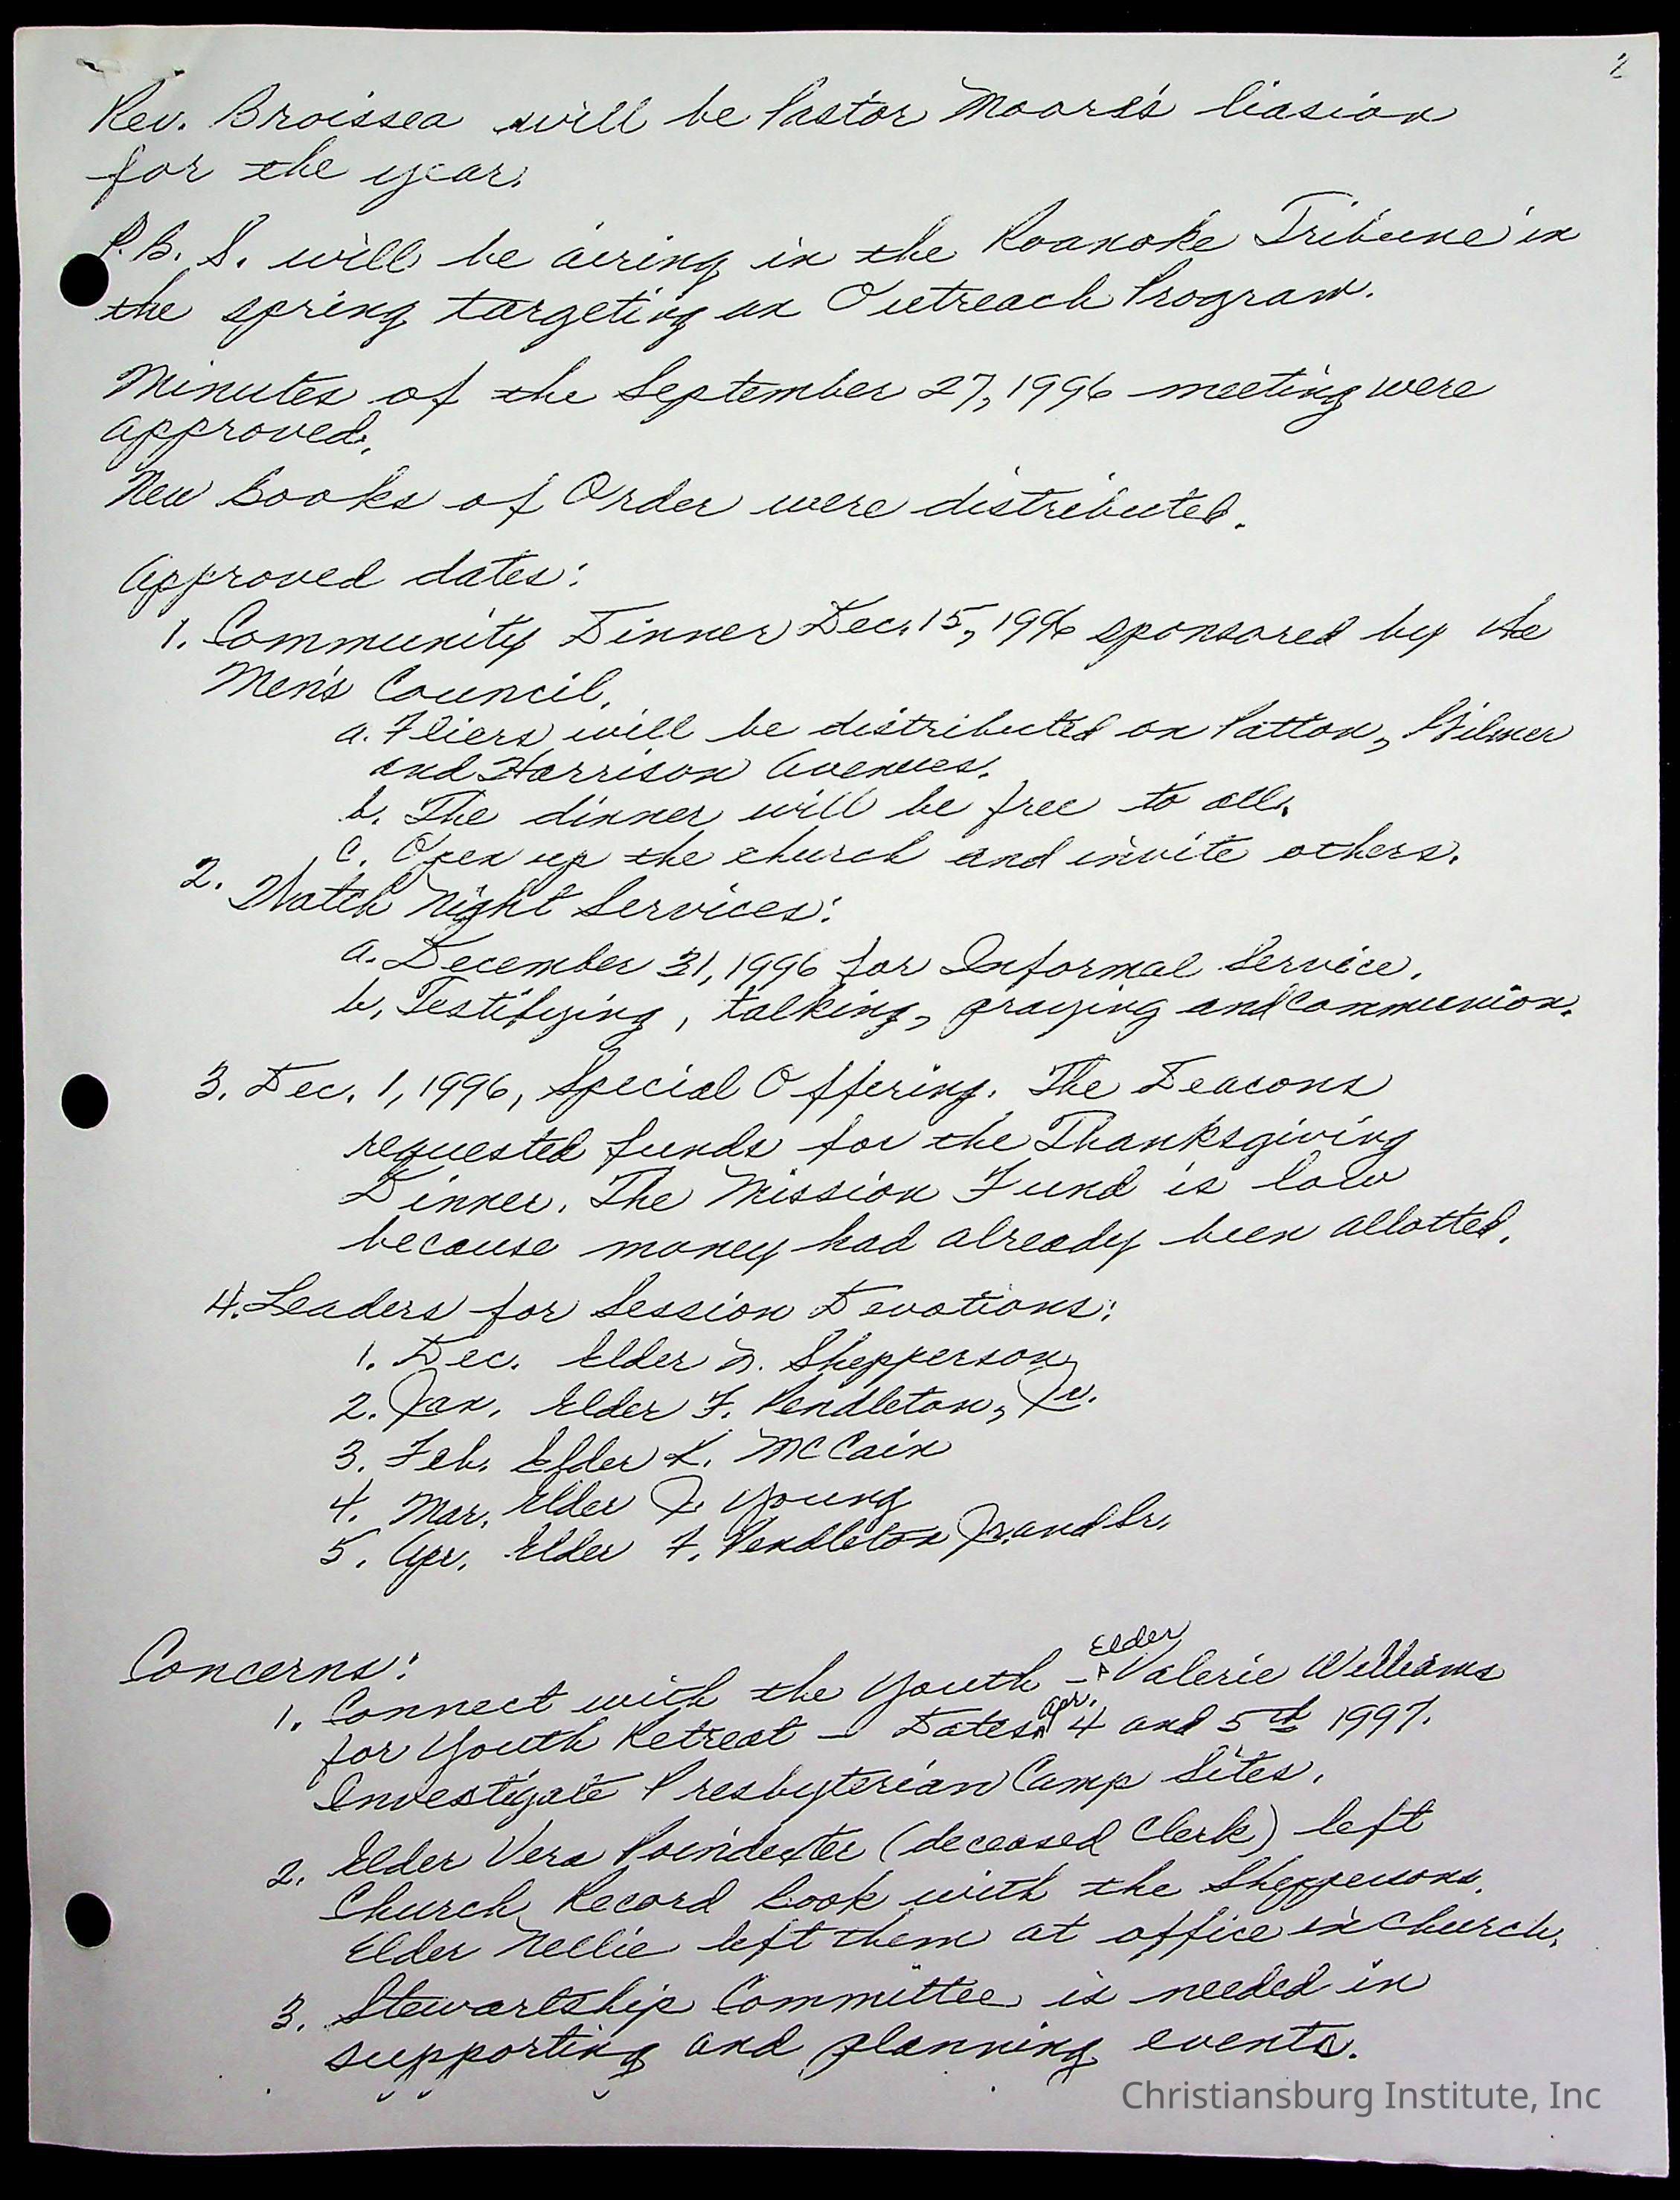 2
Rev. Broissea will be Pastor Moore's liasion
for the year.
P.B.S. will be airing in the Roanoke Tribune in
the spring targeting an Outreach Program.
Minutes of the September 27, 1996 meeting were
approved.
New Books of Order were distributed.
Approved dates:
1. Community Dinner Dec. 15, 1996 sponsored by the
Men's Council.
a. Fliers will be distributed on Patton, Wilmer
and Harrison Avenues.
b. The dinner will be free to all.
c. Open up the church and invite others.
2. Watch Night Services:
a. December 31, 1996 for Informal Service.
b. Testifying, talking, praying and communion.
3. Dec. 1, 1996, Special Offering. The Deacons
requested funds for the Thanksgiving
Dinner. The Mission Fund is low
because money had already been allotted.
4. Leaders for Session Devotions:
1. Dec. Elder N. Shepperson
2. Jan. Elder F. Pendleton, Jr.
3. Feb. Elder K. McCain
4. Mar. Elder J. Young
5. Apr. Elder F. Pendleton Jr. and Sr.
Concerns:
1. Connect with the Youth - Elder Valerie Williams
for Youth Retreat - Dates Apr. 4 and 5th 1997.
Investigate Presbyterian Camp Sites.
2. Elder Vera Poindexter (deceased Clerk) left
Church Record book with the Sheppersons.
Elder Nellie left them at office in church.
3. Stewardship Committee is needed in
supporting and planning events.
Christiansburg Institute, Inc